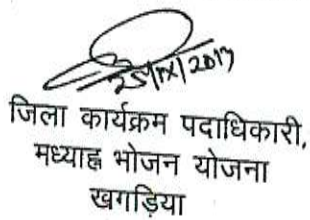 25/IX/2013
जिला कार्यक्रम पदाधिकारी,
मध्याह्न भोजन योजना
खगड़िया